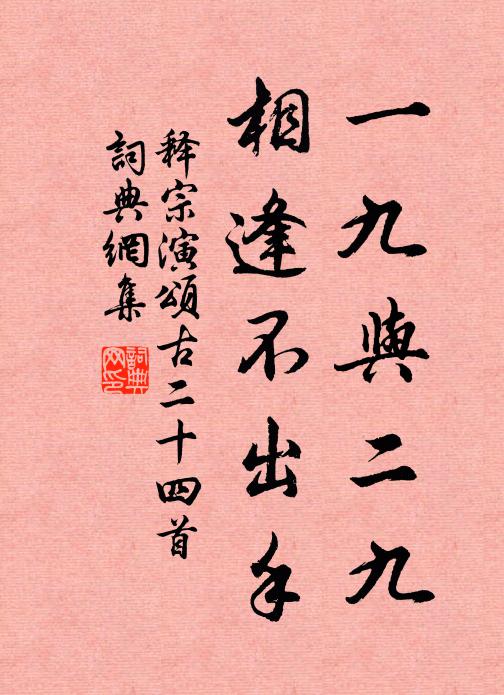 一九與二九
相逢不出手
释宗演頌古二十四首
詞典網集
詞典網印